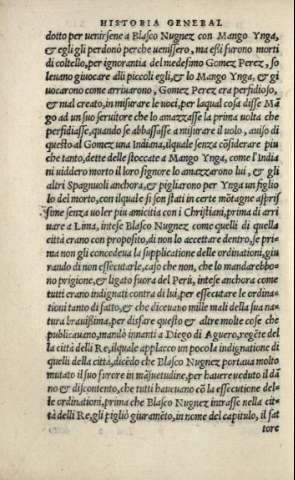 HISTORIA GENERAL
dotto per uenirsene a Blasco Nugnez con Mango Ynga,
& egli gli perdonò perche uenissero, ma essi furono morti
di coltello, per ignorantia del medesimo Gomez Perez, so
leuano giuocare alli piccoli egli, & lo Mango Ynga, & gi
uocarono come arriuarono, Gomez Perez era perfidioso,
& mal creato, in misurare le uoci, per laqual cosa disse Mã
go ad un suo seruitore che lo amazzasse la prima uolta che
perfidiasse, quando se abbassasse a misurare il uolo, auisò di
questo al Gomez una Indiana, ilquale senza cõsiderare piu
che tanto, dette delle stoccate a Mango Ynga, come l'India
ni uiddero morto il loro signore lo amazzarono lui, & gli
altri Spagnuoli anchora, & pigliarono per Ynga un figlio
lo del morto, con ilquale si sen stati in certe mõtagne aspris
sime senza uoler piu amicitia con i Christiani, prima di arri
uare a Lima, intese Blasco Nugnez come quelli di quella
città erano con proposito, di non lo accettare dentro, se pri
ma non gli concedeua la supplicatione delle ordinationi, giu
rando di non essecutarle, caso che non, che lo mandarebbo-
no prigione, & ligato fuora del Perù, intese anchora come
tutti erano indignati contra di lui, per essecutare le ordina-
tioni tanto di fatto, & che diceuano mille mali della sua na-
tura brauissima, per disfare questo & altre molte cose che
publicauano, mandò innanti a Diego di Aguero, regëte del
la città delli Re, ilquale applacco un poco la indignatione di
quelli della città, dicëdo che Blasco Nugnez portaua molto
mutato il suo furore in mãsuetudine, per hauere ueduto il dã
no & discontento, che tutti haueuano cõ la essecutione del-
le ordinationi, prima che Blasco Nugnez intrasse nella cit-
tà delli Re, gli pigliò giuramëto, in nome del capitulo, il fat
tore